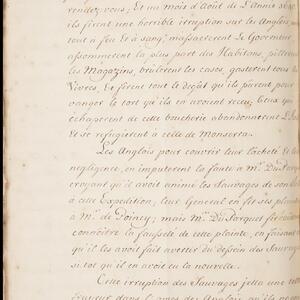 rendez vous, Et au mois d'Août de L'Année 1640
ils firent une horrible irruption sur les Anglois
tout a feu et à sang, massacrerent Le Gouverneur
assommerent la plus part des Habitans, pillerent
les Magazins, brûlerent les cases, gasterent tous les
Vivres, Et firent tout le dégât qu'ils purent pour
vanger le tort qu'ils en avoient receu; Ceux qui
échaperent de cette boucherie abandonnerent L'Isle
Et se refugierent à celle de Monserra.
Les Anglois pour couvrir leur lâcheté et leur
negligence, en imputerent la faute à Mr. Du Parquet
croyant qu'il avoit animé les Sauvages de son
à cette Expedition, leur General en fit ses plaintes
à Mr. de Poincy; mais Mr. Du Parquet fit bien
connoître la fausseté de cette plainte, en faisant
qu'il les avoit fait avertir du dessein des Sauvages
si tôt qu'il en avoit eu la nouvelle.
Cette irruption des Sauvages jetta une telle
frayeur dans l'ame des Anglois qu'ils